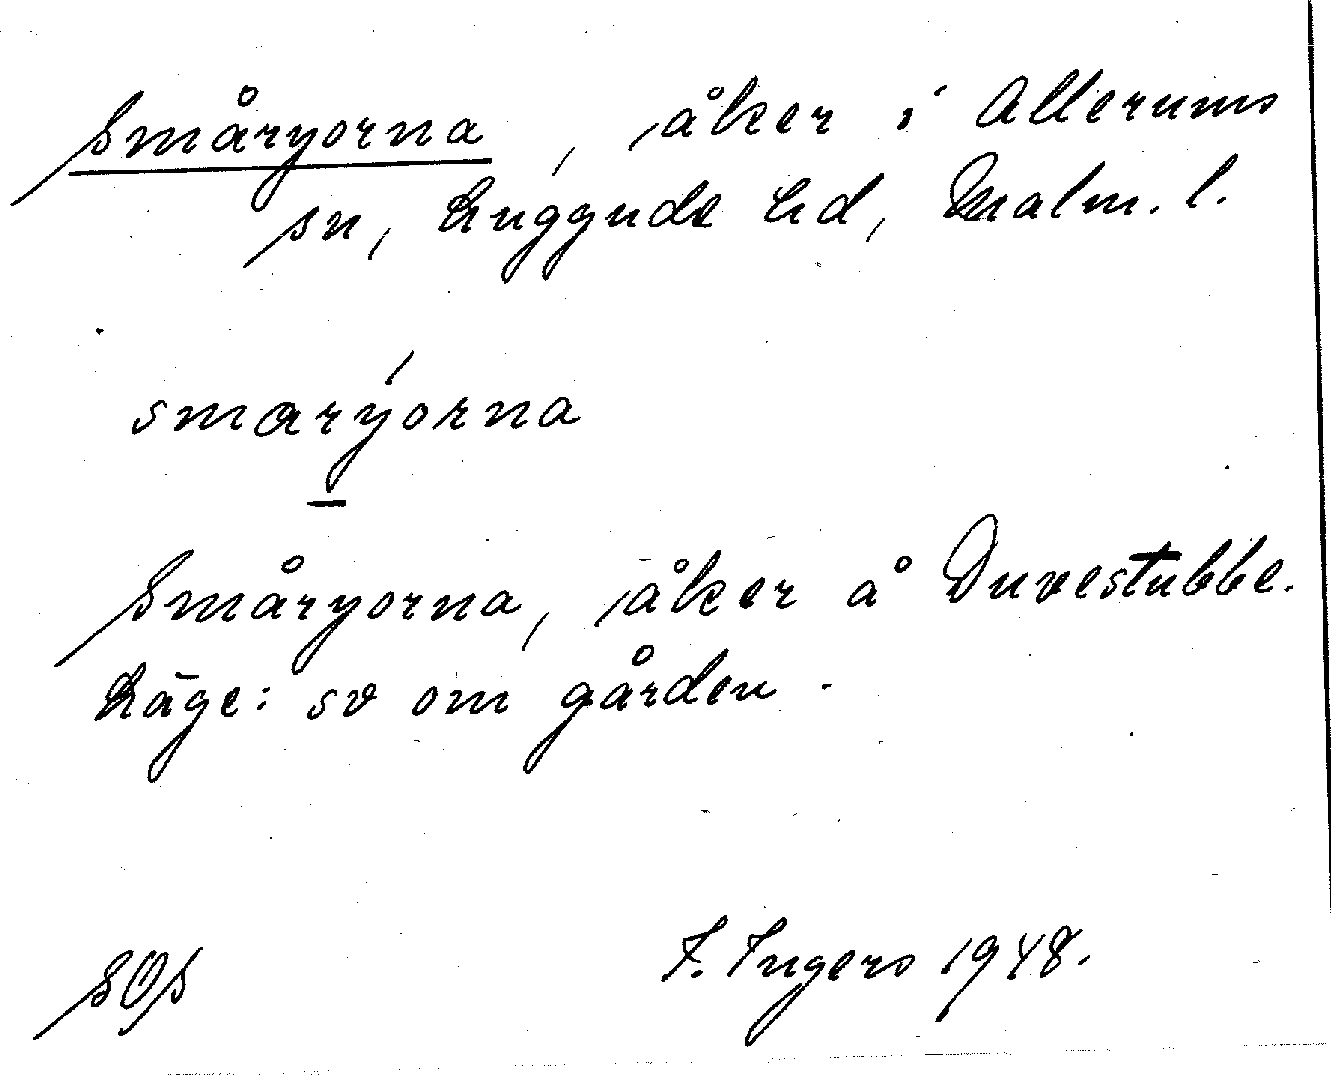 Småryorna, åker i Allerums
sn, Luggude hd, Malm. l.
smarýorna
Småryorna, åker å Duvestubbe.
Läge: sv om gården.
SOS
I. Ingers 1948.